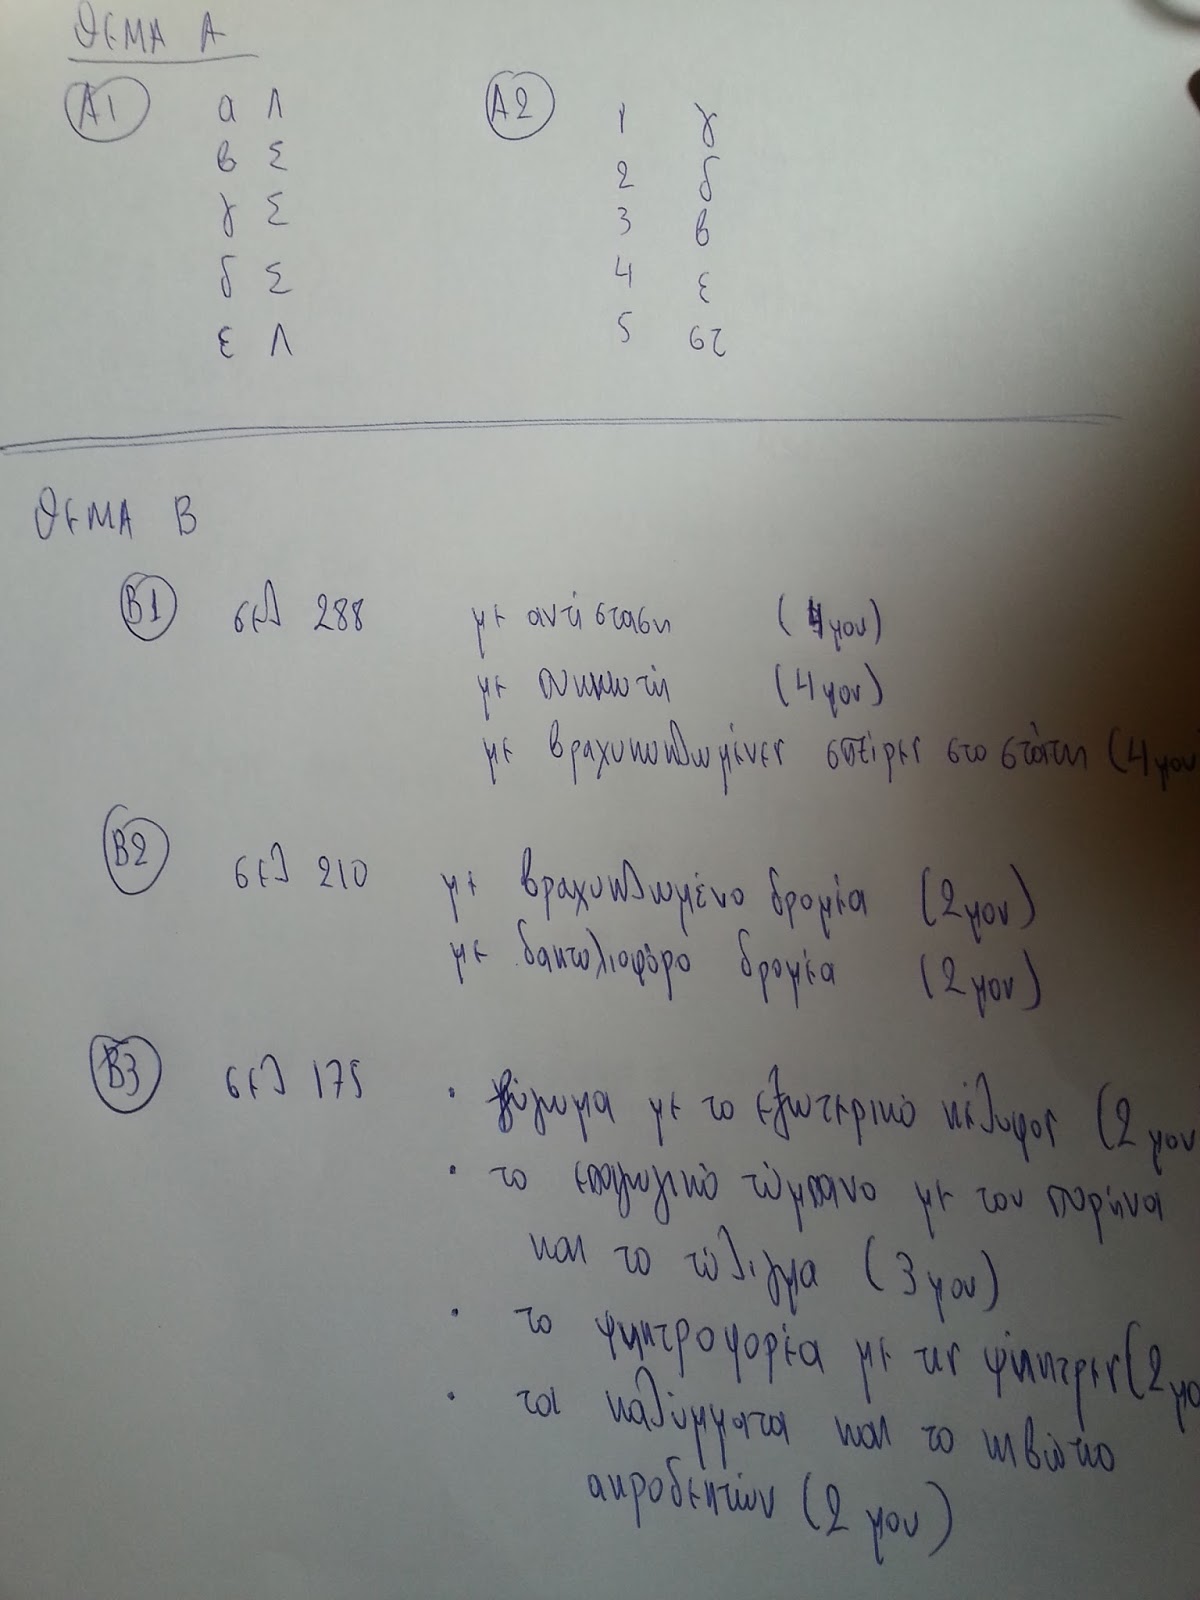 ΘΕΜΑ Α
Α1 α Λ
β Σ
γ Σ
δ Σ
ε Λ
Α2 1 γ
2 δ
3 β
4 ε
5 στ
ΘΕΜΑ Β
Β1 σελ 288 με αντίσταση (4 μον)
με πυκνωτή (4 μον)
με βραχυκυκλωμένες σπείρες στο στάτη (4 μον
Β2 σελ 210 με βραχυκλωμένο δρομέα (2 μον)
με δακτυλιοφόρο δρομέα (2 μον)
Β3 σελ 175 · ζύγωμα με το εξωτερικό κέλυφος (2 μον
· το επαγωγικό τύμπανο με τον πυρήνα
και το τύλιγμα (3 μον)
· το ψηκτροφορέα με τις ψήκτρες (2 μο
· τα καλύμματα και το κιβώτιο
ακροδεκτών (2 μον)